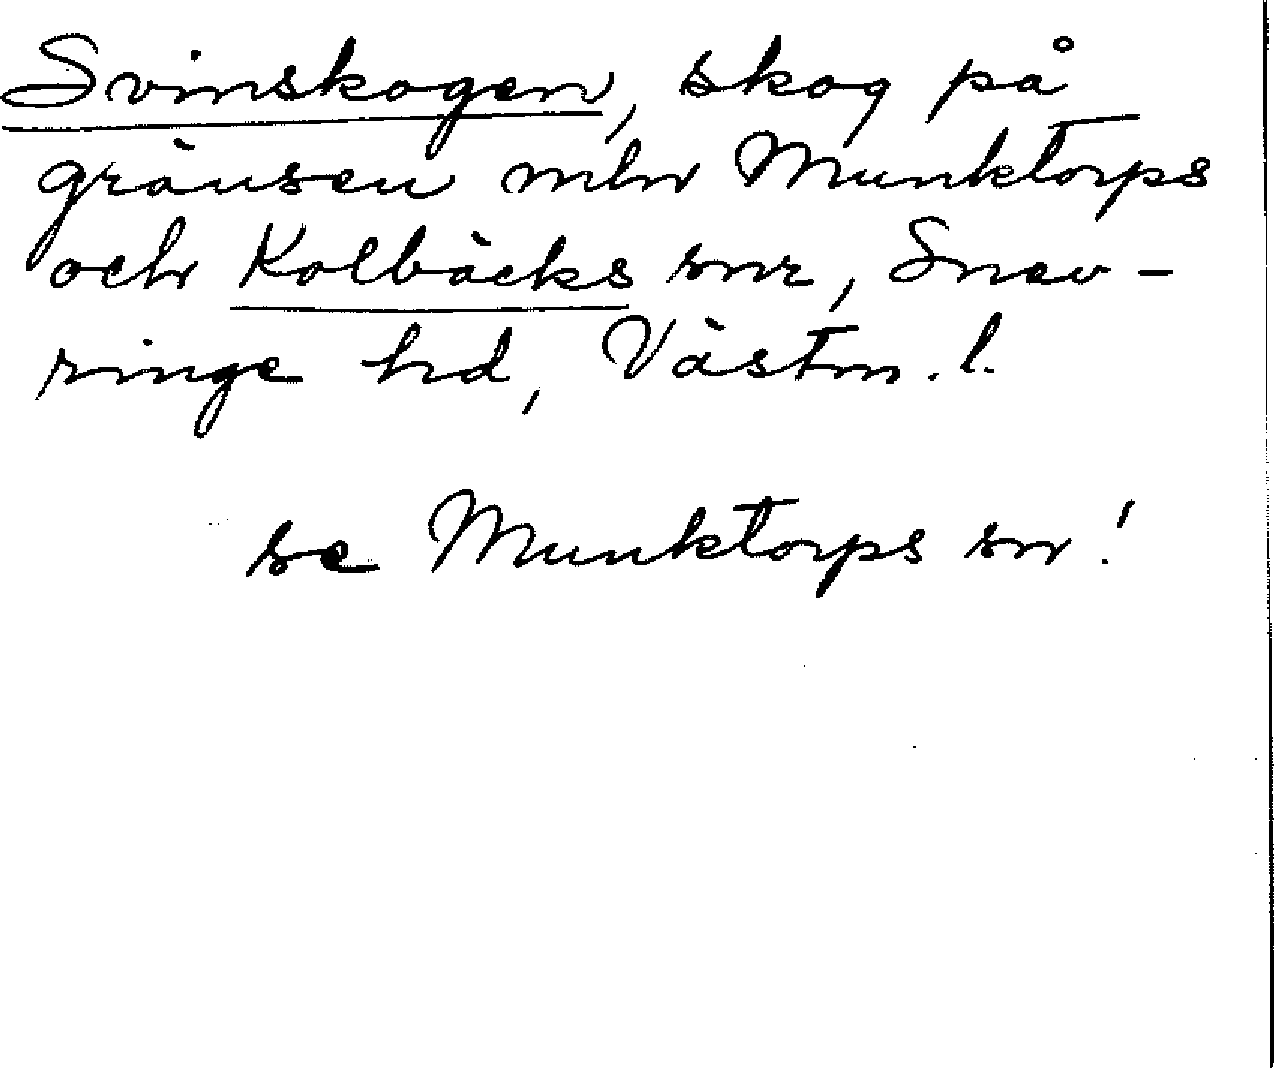 Svinskogen, skog på
gränsen mln Munktorps
och Kolbäcks snr, Snev-
ringe hd, Västm. l.
se Munktorps sn!